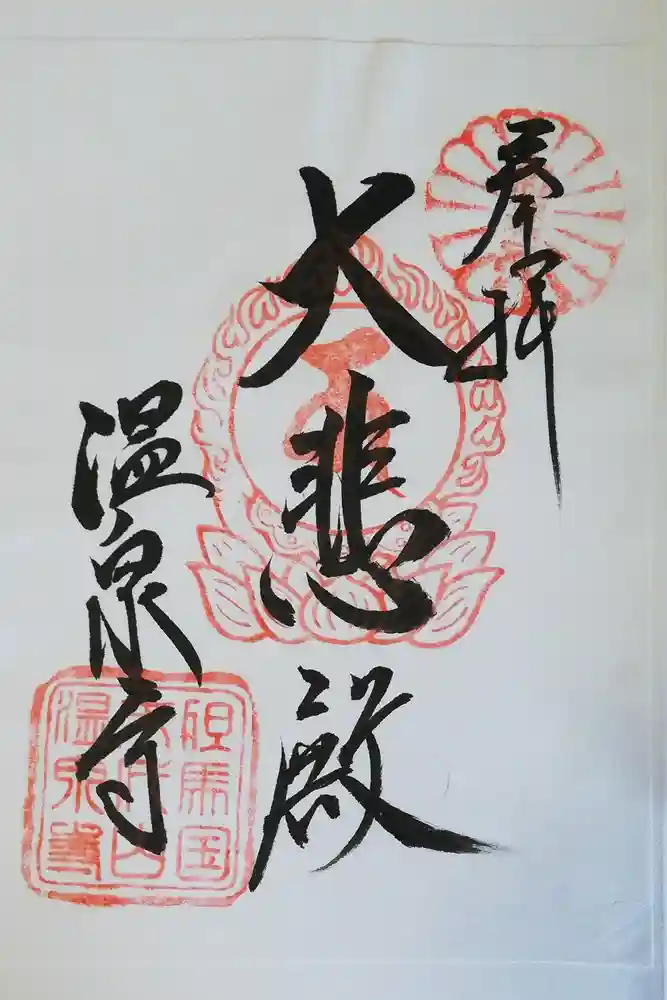 奉拝
大悲殿
温泉寺
但馬国
温泉寺